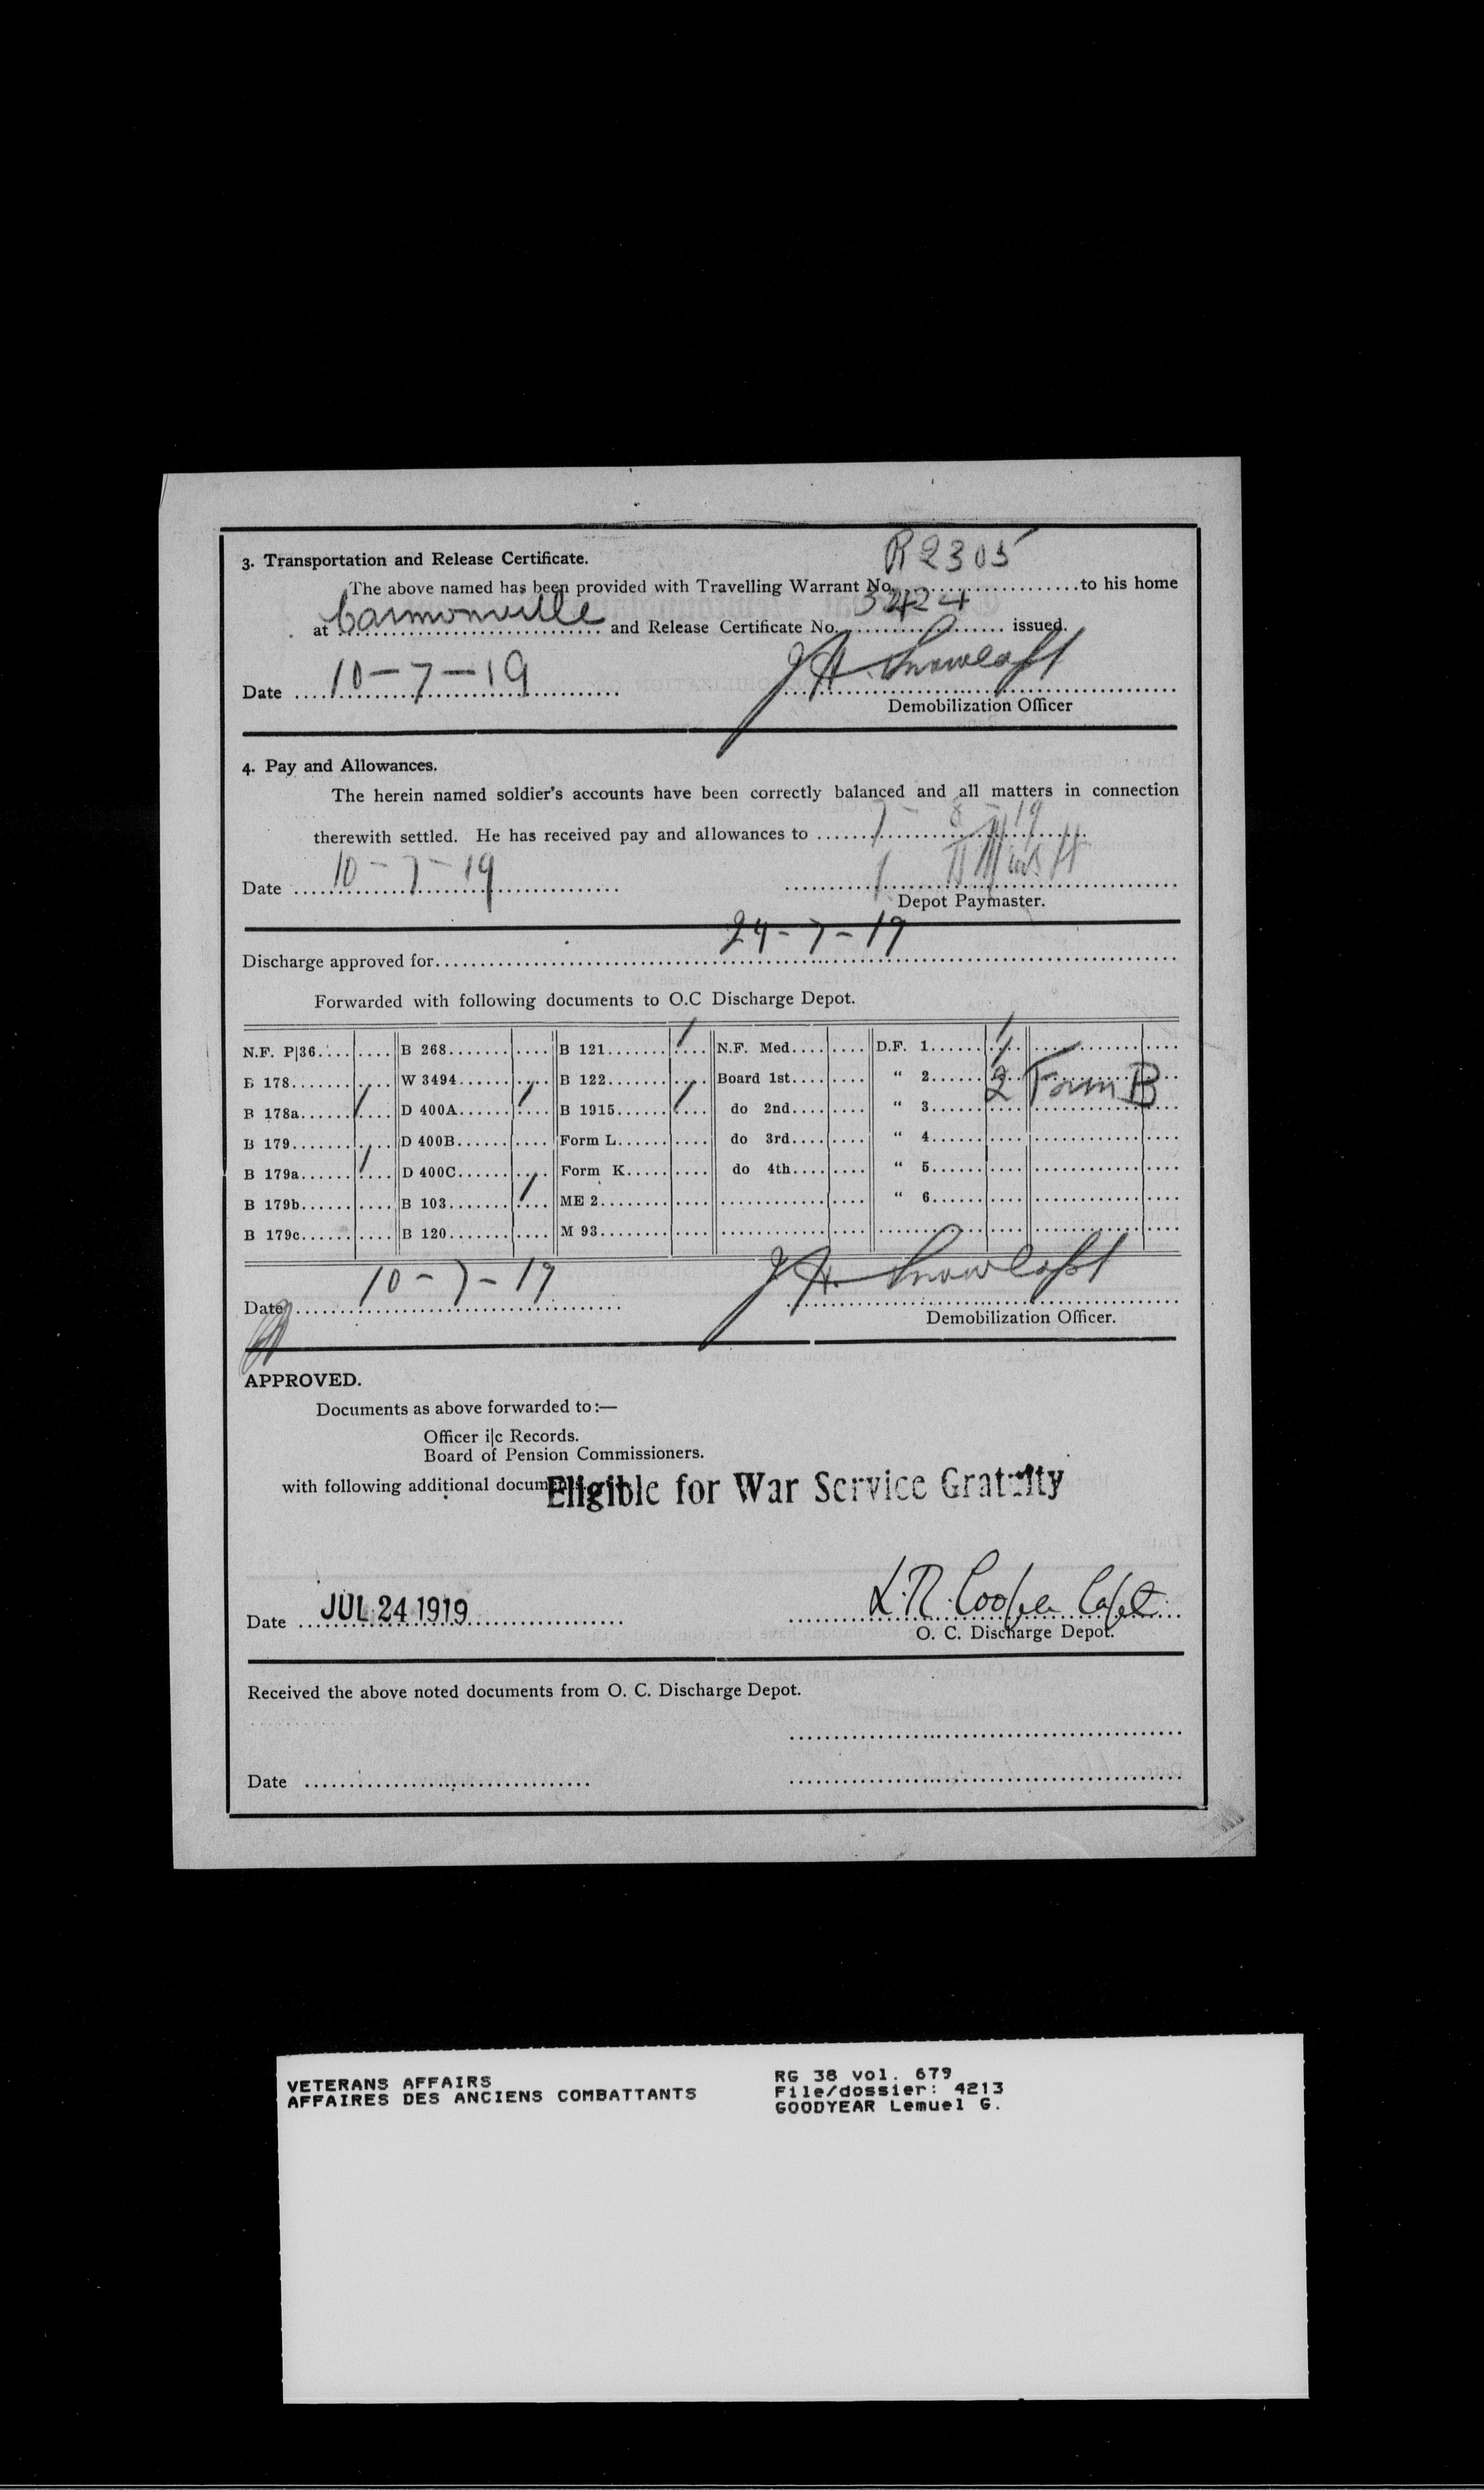 3. Transportation and Release Certificate.
R2305
The above named has been provided with Travelling Warrant No. .................... to his home
at Carmonville and Release Certificate No. 3424 issued.
Date 10-7-19
J. H. Snowclaft
Demobilization Officer
4. Pay and Allowances.
The herein named soldier's accounts have been correctly balanced and all matters in connection
therewith settled. He has received pay and allowances to 7-8-19
Date 10-7-19
Depot Paymaster.
Discharge approved for 24-7-19
Forwarded with following documents to O.C Discharge Depot.
N.F. P|36 B 268 B 121 / N.F. Med. D.F. 1 /
B 178 W 3494 B 122 Board 1st " 2 /
B 178a / D 400A / B 1915 / do 2nd " 3 2 Form B
B 179 D 400B Form L do 3rd " 4
B 179a / D 400C Form K do 4th " 5
B 179b B 103 / ME 2 " 6
B 179c B 120 M 93
Date 10-7-19
J. H. Snowclaft
Demobilization Officer.
APPROVED.
Documents as above forwarded to:—
Officer i|c Records.
Board of Pension Commissioners.
with following additional docum
Eligible for War Service Gratuity
Date JUL 24 1919
L.R. Cooper Capt
O. C. Discharge Depot.
Received the above noted documents from O. C. Discharge Depot.
Date
VETERANS AFFAIRS
AFFAIRES DES ANCIENS COMBATTANTS
RG 38 vol. 679
File/dossier: 4213
GOODYEAR Lemuel G.